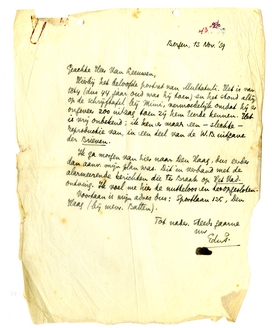 43
Bergen, 13 Nov. '39
Geachte Heer Van Leeuwen,
Hierbij het beloofde portret van Multatuli. Het is van
1864 (dus 44 jaar oud was hij toen) en het stond altijd
op de schrijftafel bij Mimi, vermoedelijk omdat hij er
ongeveer zoo uitzag toen zij hem leerde kennen. Het
is vrij onbekend; ik ken er maar een - slechte -
reproductie van, in een deel van de W.B. uitgave
der Brieven.
Ik ga morgen van hier naar Den Haag, dus eerder
dan aanv. mijn plan was. Dit in verband met de
alarmeerende berichten die Ter Braak op Het Vad.
ontving. Ik voel me hier te nutteloos en hoogst
Voortaan is mijn adres dus: Sportlaan 125, Den
Haag (bij mevr. Batten).
Tot nader. Steeds gaarne
uw
EduP.